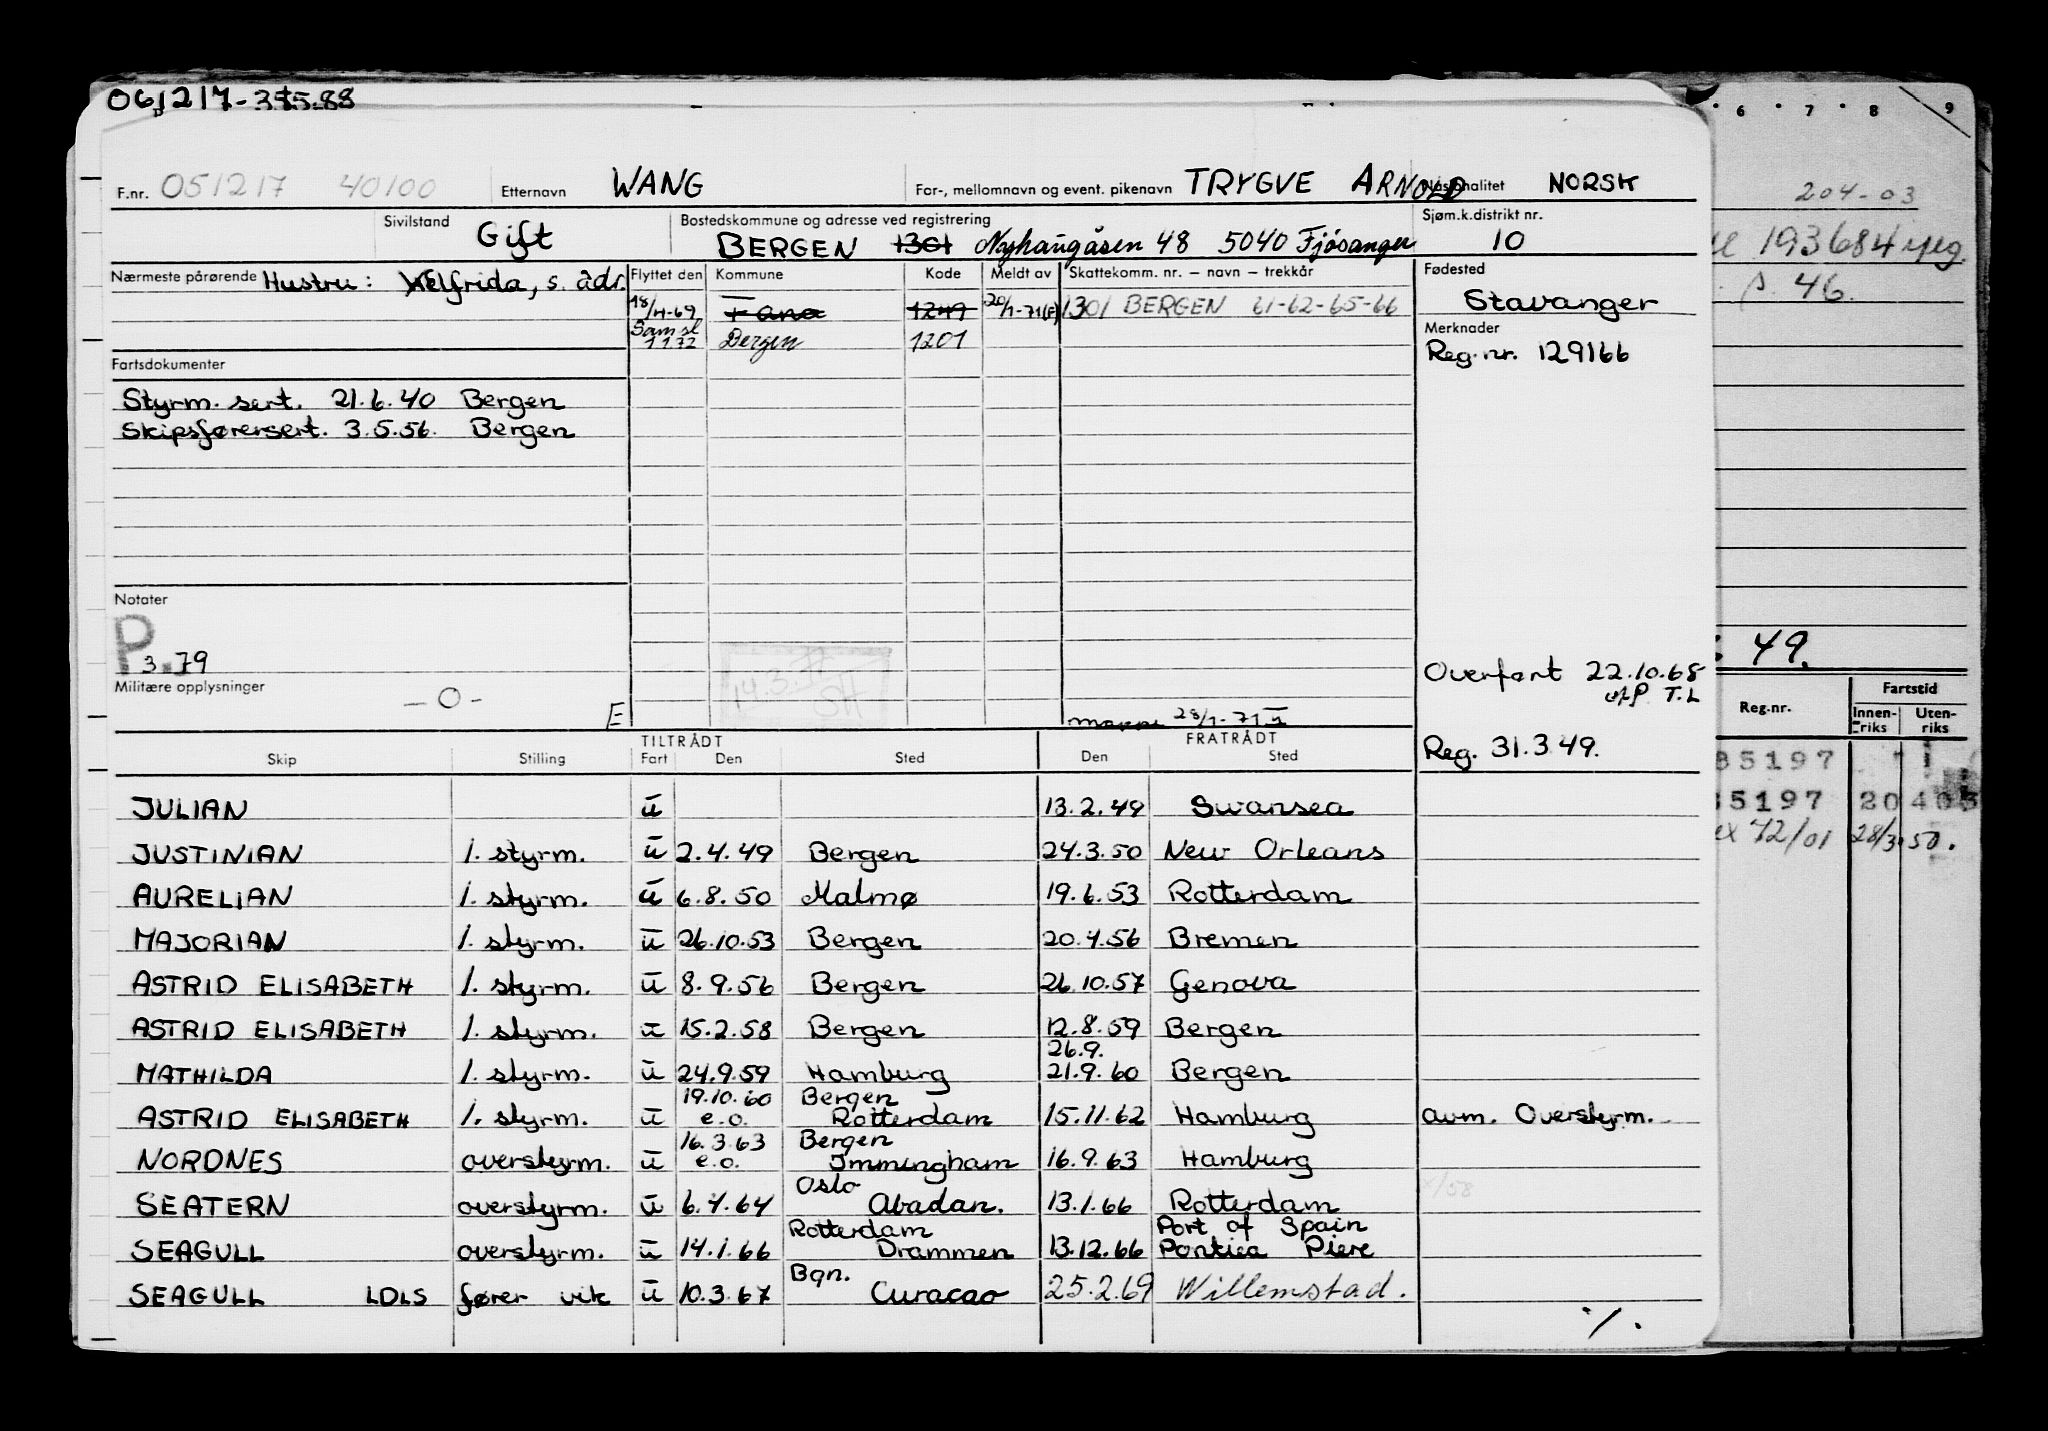 6 7 8 9
F.nr. 051217 40100 Etternavn WANG For-, mellomnavn og event. pikenavn TRYGVE ARNOLD Nasjonalitet NORSK
204-03
Sivilstand Gift Bostedskommune og adresse ved registrering BERGEN 1301 Nyhaugåsen 48 5040 Fjøsanger Sjøm.k.distrikt nr. 10
193684
Nærmeste pårørende Hustru: Elfrida, s. adr. Flyttet den Kommune Kode Meldt av Skattekomm. nr. – navn – trekkår Fødested
46.
18/4-69 Fana 1249 20/1-71(F) 1301 BERGEN 61-62-65-66 Stavanger
Sam.sl 1 1 72 Bergen 1201
Merknader
Reg.nr. 129166
Fartsdokumenter
Styrm. sert. 21.6.40 Bergen
Skipsførersert. 3.5.56. Bergen
Notater
P. 3.79
49.
Militære opplysninger – 0 – E
14.3.77 SH
Overført 22.10.68
T.L
28/1-71
Reg. 31.3.49.
Reg.nr. Fartstid
Innenriks Utenriks
TILTRÅDT FRATRÅDT
Skip Stilling Fart Den Sted Den Sted
JULIAN u 13.2.49 Swansea
JUSTINIAN 1. styrm. u 2.4.49 Bergen 24.3.50 New Orleans
AURELIAN 1. styrm. u 6.8.50 Malmø 19.6.53 Rotterdam
MAJORIAN 1. styrm. u 26.10.53 Bergen 20.4.56 Bremen
ASTRID ELISABETH 1. styrm. u 8.9.56 Bergen 26.10.57 Genova
ASTRID ELISABETH 1. styrm. u 15.2.58 Bergen 12.8.59 Bergen
26.9.
MATHILDA 1. styrm. u 24.9.59 Hamburg 21.9.60 Bergen
19.10.60 Bergen
ASTRID ELISABETH 1. styrm. u e.o. Rotterdam 15.11.62 Hamburg avm. Overstyrm.
16.3.63 Bergen
NORDNES overstyrm. u e.o. Immingham 16.9.63 Hamburg
Oslo
SEATERN overstyrm. u 6.4.64 Abadan. 13.1.66 Rotterdam
Rotterdam Port of Spain
SEAGULL overstyrm. u 14.1.66 Drammen 13.12.66 Pontiea Piere
Bgn.
SEAGULL LDLS fører vik u 10.3.67 Curacao 25.2.69 Willemstad.
./.
85197
35197 20 403
72/01 28/3.50.